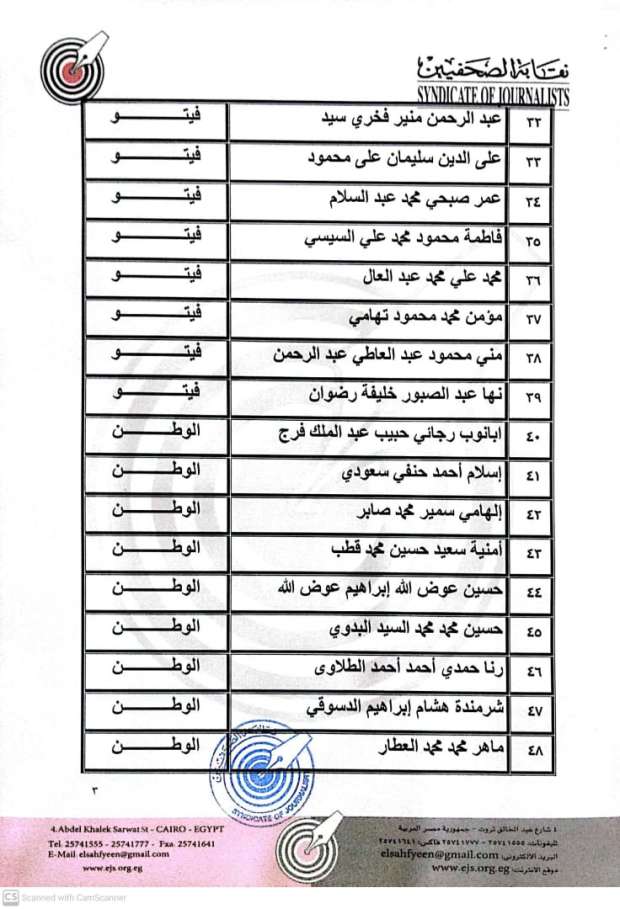 نقابة الصحفيين
SYNDICATE OF JOURNALISTS
٣٢ عبد الرحمن منير فخري سيد فيتـــــو
٣٣ على الدين سليمان على محمود فيتـــــو
٣٤ عمر صبحي محمد عبد السلام فيتـــــو
٣٥ فاطمة محمود محمد علي السيسي فيتـــــو
٣٦ محمد علي محمد عبد العال فيتـــــو
٣٧ مؤمن محمد محمود تهامي فيتـــــو
٣٨ مني محمود عبد العاطي عبد الرحمن فيتـــــو
٣٩ نها عبد الصبور خليفة رضوان فيتـــــو
٤٠ ابانوب رجائي حبيب عبد الملك فرج الوطـــــن
٤١ إسلام أحمد حنفي سعودي الوطـــــن
٤٢ إلهامي سمير محمد صابر الوطـــــن
٤٣ أمنية سعيد حسين محمد قطب الوطـــــن
٤٤ حسين عوض الله إبراهيم عوض الله الوطـــــن
٤٥ حسين محمد محمد السيد البدوي الوطـــــن
٤٦ رنا حمدي أحمد أحمد الطلاوى الوطـــــن
٤٧ شرمندة هشام إبراهيم الدسوقي الوطـــــن
٤٨ ماهر محمد محمد العطار الوطـــــن
SYNDICATE OF JOURNALISTS
٣
٤ شارع عبد الخالق ثروت - جمهورية مصر العربية
تليفونات: ٢٥٧٤١٥٥٥ - ٢٥٧٤١٧٧٧ فاكس: ٢٥٧٤١٦٤١
البريد الالكتروني: elsahfyeen@gmail.com
موقع الانترنت: www.ejs.org.eg
4.Abdel Khalek Sarwat St - CAIRO - EGYPT
Tel. 25741555 - 25741777 - Fxa. 25741641
E-Mail. elsahfyeen@gmail.com
www.ejs.org.eg
CS Scanned with CamScanner